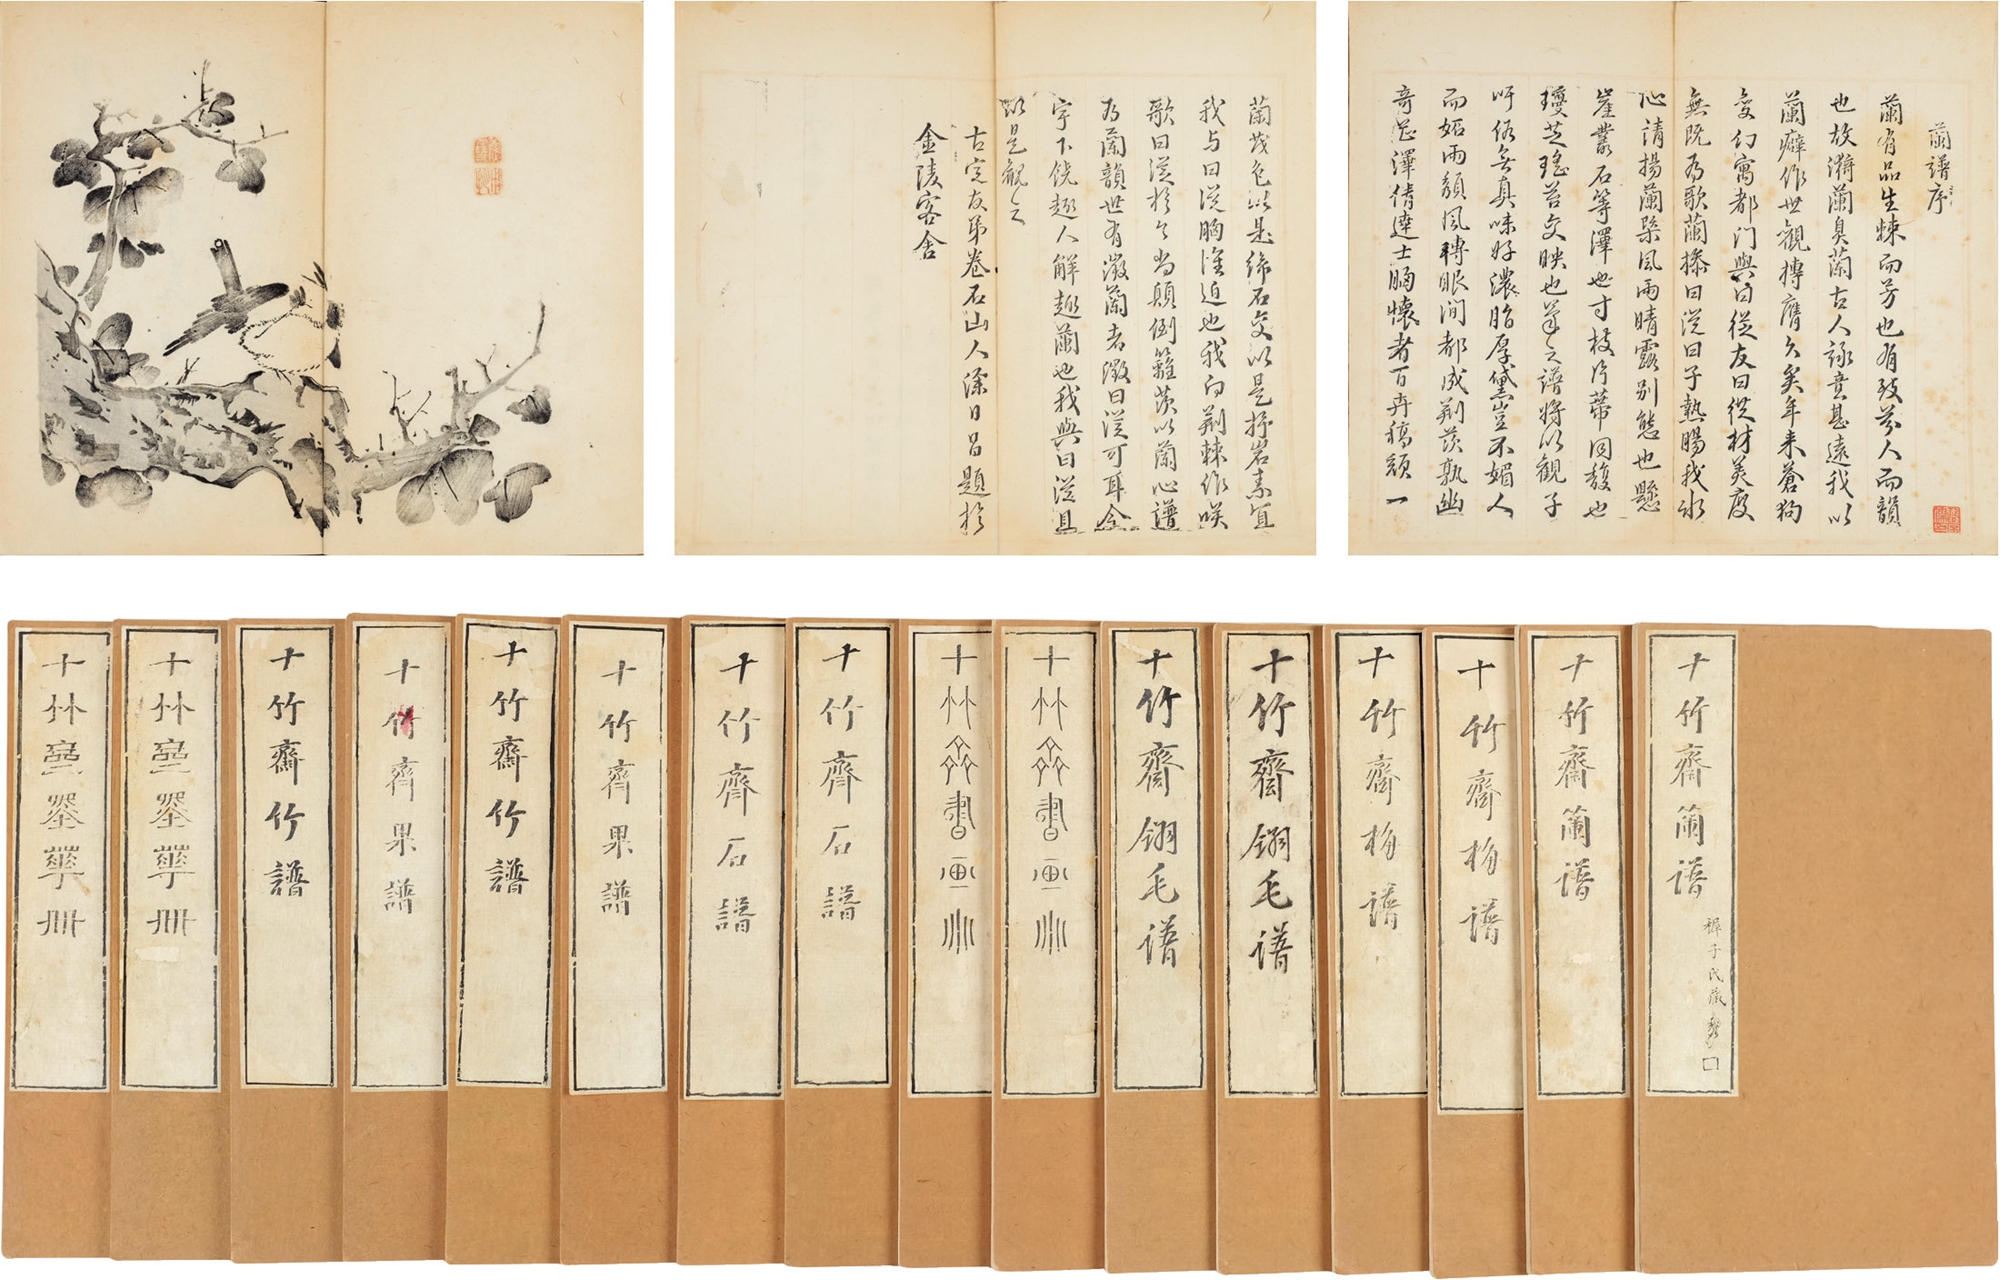 蘭譜序
蘭有品生棘而芳也有致人而韻
也故漪蘭臭蘭古人詠意甚遠我以
蘭癖作世觀摶膺久矣年来蒼狗
變幻寓都门與曰從友曰從材美度
無既為歌蘭操曰從曰子熱腸我冰
心請揚蘭槩風雨晴露别態也懸
崖叢石等澤也寸枝片蒂同馥也
瓊芝瑤苔交映也筆之譜將以觀子
吁俗無真味好濃脂厚黛豈不媚人
而妬雨顏風轉眼间都成荊茨孰幽
奇澤倩達士胸懷者百卉稿頹一
蘭茂色以是締石交以是抒岩素宜
我与曰從胸迫也我向荊棘作咲
歌曰從於之當顛倒籬茨以蘭心譜
為蘭韻世有澂蘭者澂曰從可耳余
字下饒趣人解趣蘭也我與曰從且
以是觀之
古定友弟卷石山人涂日昌題於
金陵客舍
十竹齋蘭譜
穉子氏藏
十竹齋蘭譜
十竹齋梅譜
十竹齋梅譜
十竹齋翎毛譜
十竹齋翎毛譜
十竹齋書画冊
十竹齋書画冊
十竹齋石譜
十竹齋石譜
十竹齋果譜
十竹齋竹譜
十竹齋果譜
十竹齋竹譜
十竹齋墨華冊
十竹齋墨華冊